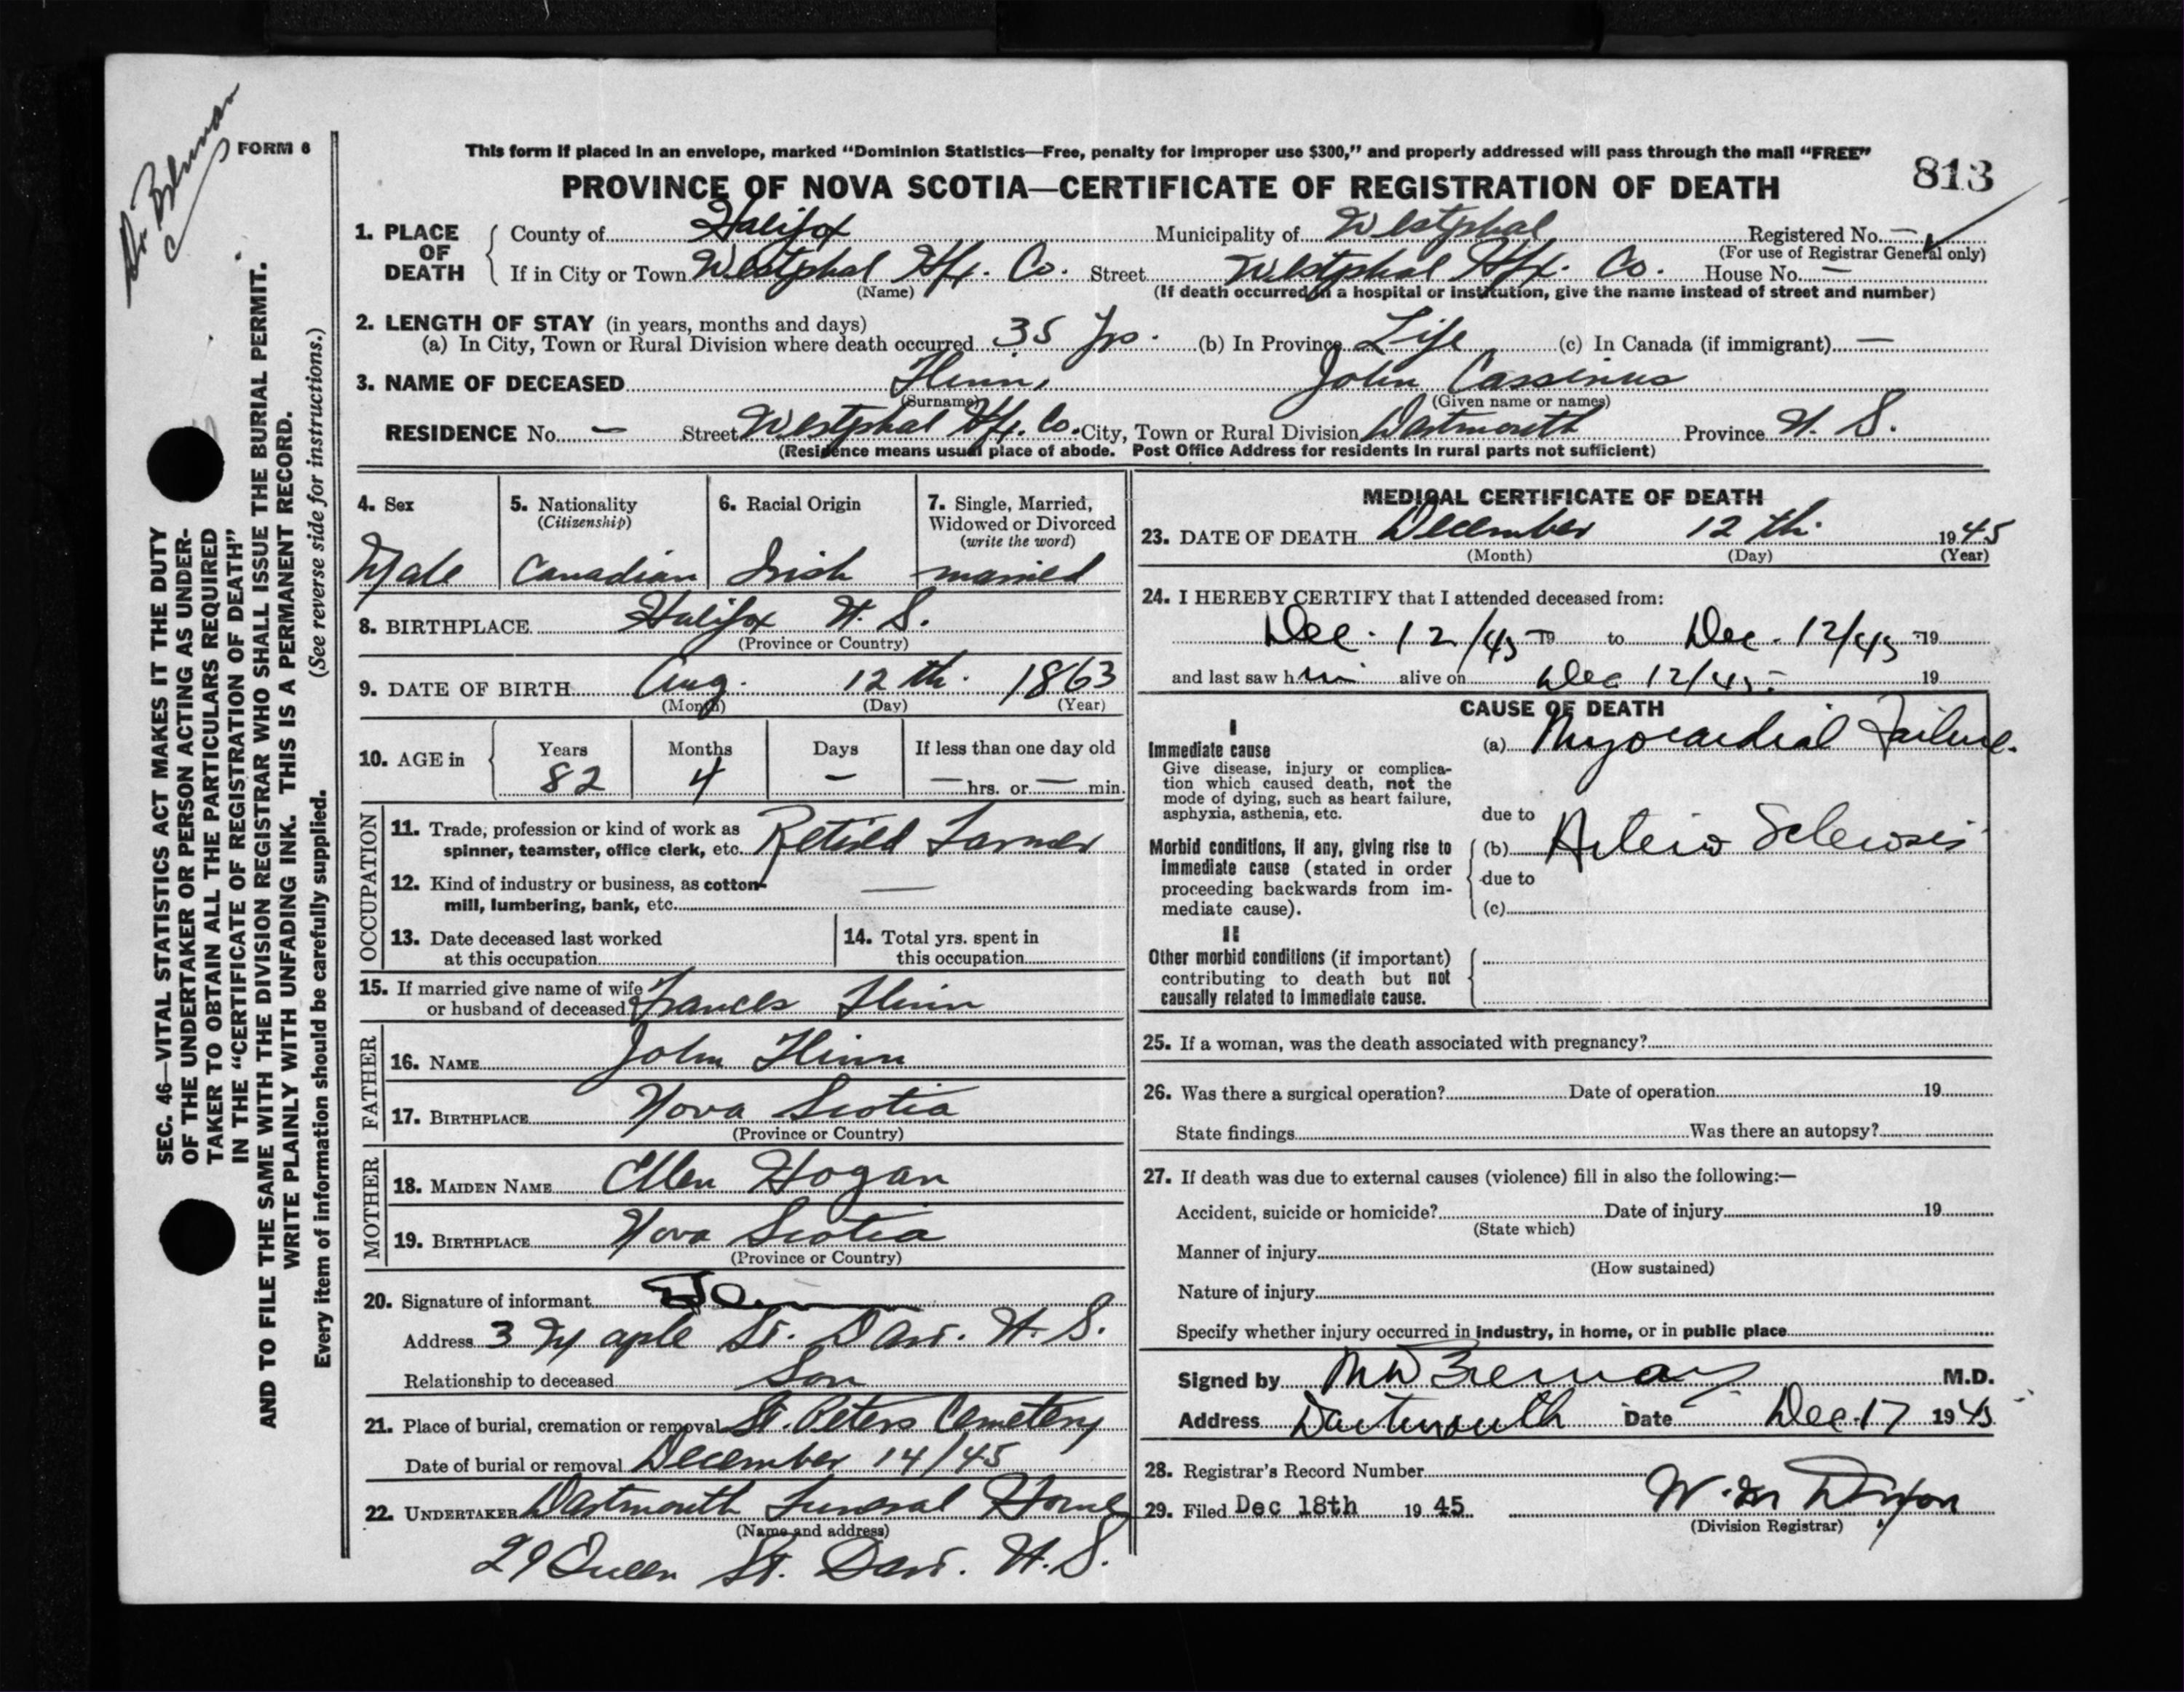 Dr Brennan
FORM 6
This form if placed in an envelope, marked “Dominion Statistics—Free, penalty for improper use $300,” and properly addressed will pass through the mail “FREE”
813
PROVINCE OF NOVA SCOTIA—CERTIFICATE OF REGISTRATION OF DEATH
1. PLACE OF DEATH County of Halifax Municipality of Westphal Registered No. —
(For use of Registrar General only)
If in City or Town Westphal Hfx. Co. Street Westphal Hfx. Co. House No. —
(Name) (If death occurred in a hospital or institution, give the name instead of street and number)
2. LENGTH OF STAY (in years, months and days)
(a) In City, Town or Rural Division where death occurred 35 yrs. (b) In Province Life (c) In Canada (if immigrant) —
3. NAME OF DECEASED Flinn, John Cassinus
(Surname) (Given name or names)
RESIDENCE No. — Street Westphal Hfx. Co. City, Town or Rural Division Dartmouth Province N. S.
(Residence means usual place of abode. Post Office Address for residents in rural parts not sufficient)
4. Sex 5. Nationality 6. Racial Origin 7. Single, Married,
(Citizenship) Widowed or Divorced
(write the word)
Male Canadian Irish married
8. BIRTHPLACE Halifax N. S.
(Province or Country)
9. DATE OF BIRTH Aug. 12 th. 1863
(Month) (Day) (Year)
10. AGE in Years Months Days If less than one day old
82 4 — — hrs. or — min.
OCCUPATION
11. Trade, profession or kind of work as
spinner, teamster, office clerk, etc. Retired Farmer
12. Kind of industry or business, as cotton-
mill, lumbering, bank, etc. —
13. Date deceased last worked
at this occupation
14. Total yrs. spent in
this occupation
15. If married give name of wife
or husband of deceased Frances Flinn
FATHER
16. NAME John Flinn
17. BIRTHPLACE Nova Scotia
(Province or Country)
MOTHER
18. MAIDEN NAME Ellen Hogan
19. BIRTHPLACE Nova Scotia
(Province or Country)
20. Signature of informant
Address 3 Maple St. Dart. N. S.
Relationship to deceased Son
21. Place of burial, cremation or removal St. Peters Cemetery
Date of burial or removal December 14/45
22. UNDERTAKER Dartmouth Funeral Home
(Name and address)
29 Queen St. Dart. N. S.
MEDICAL CERTIFICATE OF DEATH
23. DATE OF DEATH December 12 th. 1945
(Month) (Day) (Year)
24. I HEREBY CERTIFY that I attended deceased from:
Dec. 12/45 19 to Dec. 12/45 19
and last saw him alive on Dec 12/45 19
CAUSE OF DEATH
I
Immediate cause (a) Myocardial Failure.
Give disease, injury or complica-
tion which caused death, not the
mode of dying, such as heart failure,
asphyxia, asthenia, etc. due to
Morbid conditions, if any, giving rise to (b) Arterio Sclerosis
immediate cause (stated in order
proceeding backwards from im- due to
mediate cause). (c)
II
Other morbid conditions (if important)
contributing to death but not
causally related to immediate cause.
25. If a woman, was the death associated with pregnancy?
26. Was there a surgical operation? Date of operation 19
State findings Was there an autopsy?
27. If death was due to external causes (violence) fill in also the following:—
Accident, suicide or homicide? Date of injury 19
(State which)
Manner of injury
(How sustained)
Nature of injury
Specify whether injury occurred in industry, in home, or in public place
Signed by M W Brennan M.D.
Address Dartmouth Date Dec 17 1945
28. Registrar's Record Number
29. Filed Dec 18th 1945 W. M Dixon
(Division Registrar)
SEC. 46—VITAL STATISTICS ACT MAKES IT THE DUTY
OF THE UNDERTAKER OR PERSON ACTING AS UNDER-
TAKER TO OBTAIN ALL THE PARTICULARS REQUIRED
IN THE “CERTIFICATE OF REGISTRATION OF DEATH”
AND TO FILE THE SAME WITH THE DIVISION REGISTRAR WHO SHALL ISSUE THE BURIAL PERMIT.
WRITE PLAINLY WITH UNFADING INK. THIS IS A PERMANENT RECORD.
Every item of information should be carefully supplied. (See reverse side for instructions.)